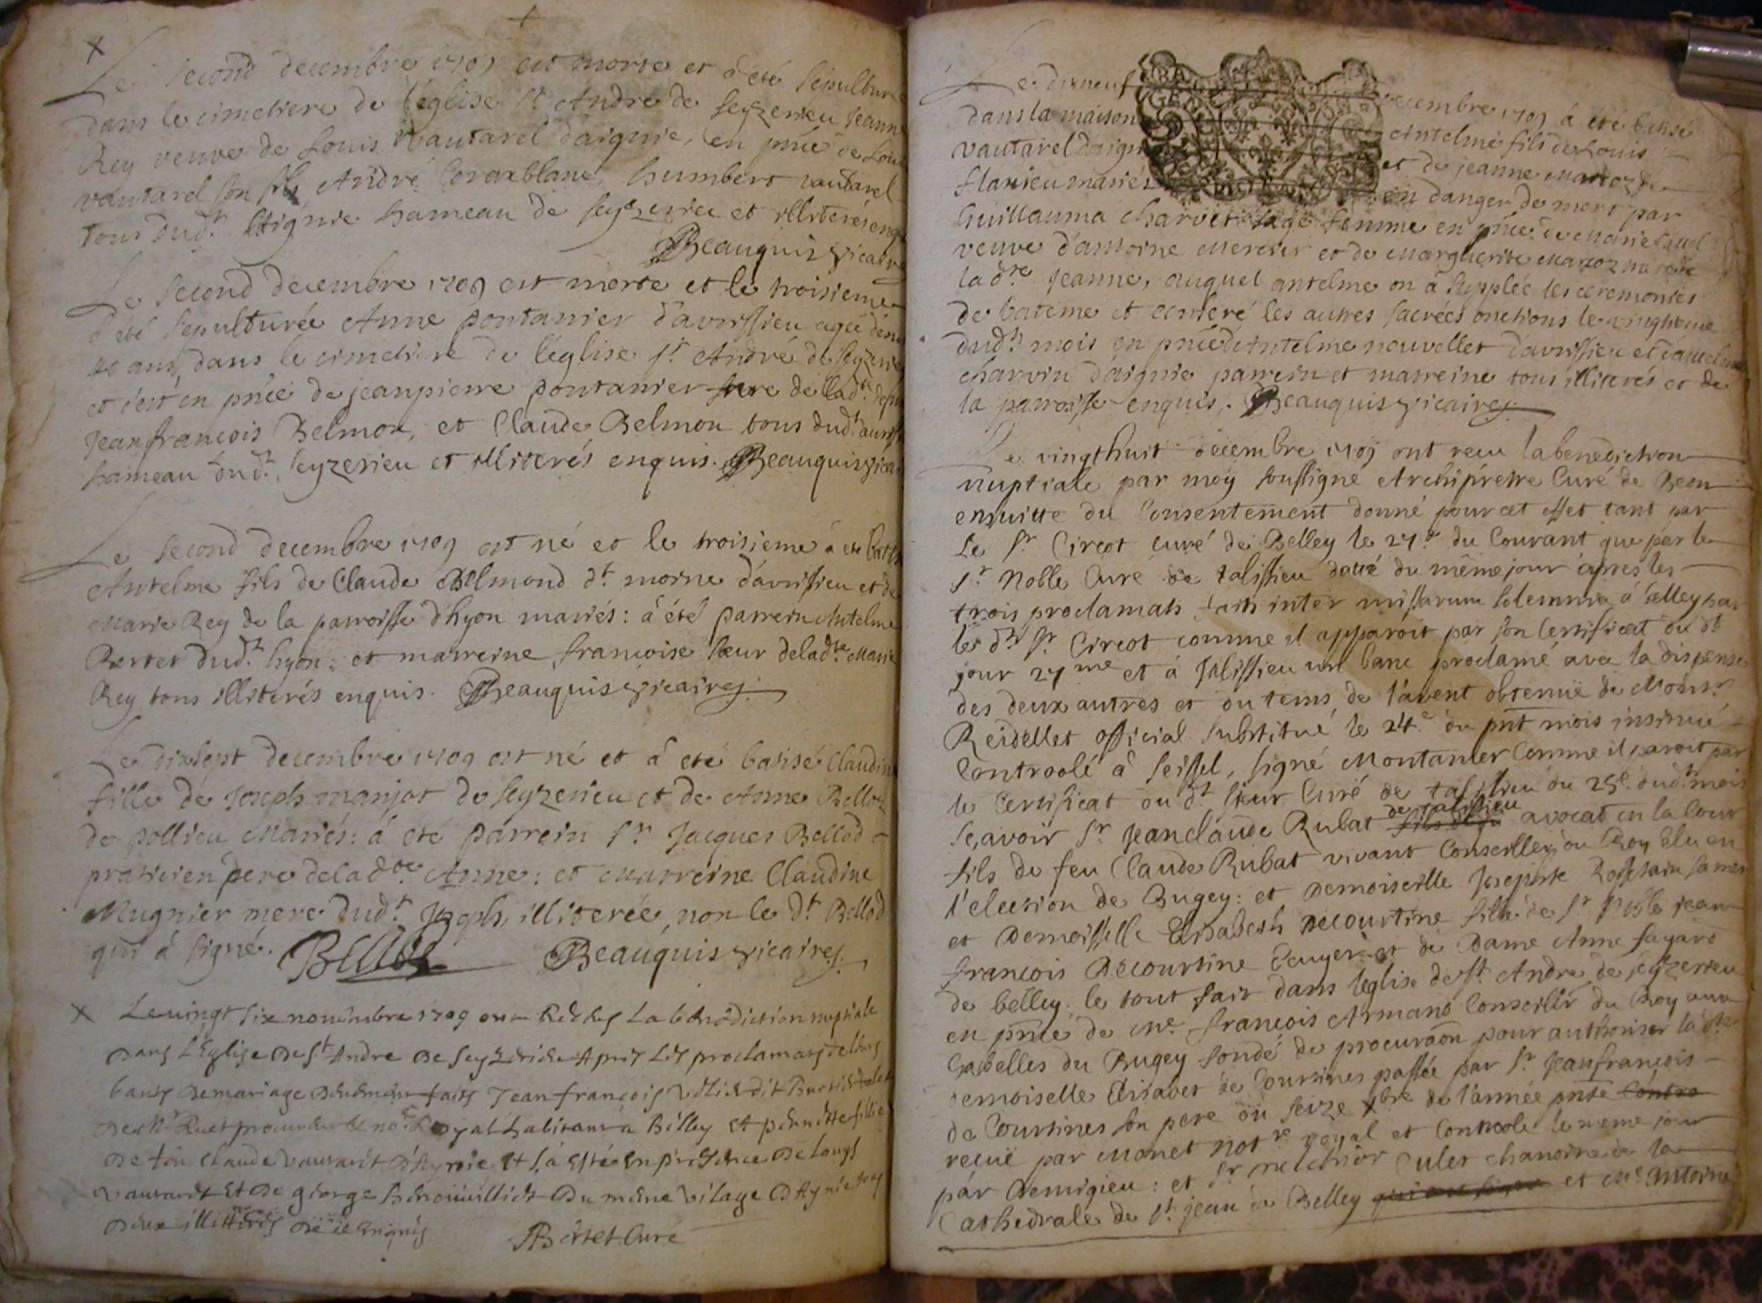 Le second decembre 1709 est morte et a été sepulturée
dans le cimetiere de l'église St André de seyzerieu Jeanne
Rey veuve de Louis vautarel d'aignie, en pñce de Louis
vautarel son fils André Coraxblanc, humbert vautarel
tous dud.t Aignie hameau de seyzerieu et illiterés enquis
Beauquis vicaire
Le second decembre 1709 est morte et le troisieme
a été sepulturée Anne pontanier d'avrissieu agée d'env
ans, dans le cimetiere de l'église St André de seyzerieu
et c'est en pñce de jeanpierre pontanier frere de lad.te
Jeanfrancois Belmon, et Claude Belmon tous dud.t
hameau dud.t seyzerieu et illiterés enquis. Beauquis vicaire
Le second decembre 1709 est né et le troisieme a été
Antelme fils de Claude Belmond d.t moine d'avrissieu et de
Marie Rey de la parroisse d'hyon mariés: a été parrein Antelme
Berret dud.t hyon; et marreine francoise sœur delad.te Marie
Rey tous illiterés enquis. Beauquis vicaire
Le dixsept decembre 1709 est né et a été batisé Claudine
fille de Joseph manjot de seyzerieu et de Anne Bellod
de pollieu mariés: a été parrein Sr Jacques Bellod
praticien pere delad.te Anne: et marreine Claudine
Mugnier mere dud.t Joseph, illiterée, non le d.t Bellod
qui a signé. Bellod Beauquis vicaire
Le vingt six novembre 1709 ont la benediction nuptiale
dans l'Eglise de St André de Seyzerieu apres les proclamas de leurs
bans de mariage deuement faits Jean françois
royal habitant a Billey et pernette fille
de feu Claude vautaret d'Aynie et a esté en presence de Louys
vautaret et de george du mesme vilage d'Aynie tous
deux illitterés de ce enquis
Bertet Curé
Le dixneuf decembre 1709 a été batisé
dans la maison Antelme fils de Louis
vautarel d'aignie et de jeanne marroz de
flaxieu mariés en danger de mort par
Guillauma Charvet sage femme en pñce de Marie
veuve d'antoine mercier et de marguerite maroz
la d.te Jeanne, auquel antelme on a supplée les ceremonies
de bateme et conferé les autres sacrées onctions le vingtieme
dud.t mois en pñce d'Antelme nouvellet d'avrissieu et
charvin d'aignie parrein et marreine tous illiterés et de
la parroisse enquis. Beauquis vicaire
Le vingthuit decembre 1709 ont recu la benediction
nuptiale par moy soussigné Archiprêtre Curé de Beon
ensuitte du Consentement donné pour cet effet tant par
Le Sr Circot curé de Belley le 27.e du Courant que par le
Sr Noble Curé de talissieu datté du même jour apres les
trois proclamats faits inter missarum solemnia a Belley par
le d.t Sr Circot comme il apparoit par son Certificat du d.t
jour 27me et a Talissieu un banc proclamé avec la dispense
des deux autres et du tems de l'avent obtenuë de Mons.r
Reidellet official substitué le 24.e du pñt mois insinué
Controolé a seissel, signé Montanier Comme il paroit par
le Certificat du d.t sieur Curé de talissieu du 25.e dud.t mois
sçavoir Sr Jeanclaude Rubat de talissieu avocat en la Cour
fils de feu Claude Rubat vivant Conseiller du Roy Elu en
l'élection de Bugey: et Demoiselle Josepte Rossetain sa mere
et Demoisselle Elisabeth Decourtine fille de Sr Noble jean
francois Decourtine Ecuyer et de Dame Anne fagard
de belley. le tout fait dans l'église de St André de seyzerieu
en pñce de Me francois Armand Conseiller du Roy aux
Gabelles du Bugey fondé de procuraõn pour authoriser la d.te
demoiselle Elisabet de Courtines passée par Sr Jeanfrancois
de Courtines son pere du seize xbre de l'année pñte
recuë par Monet not.re royal et Controolé le meme jour
par Demigieu: et Sr melchior Culet chanoine de la
Cathedrale de St jean de Belley qui ont signé et Me Antoine